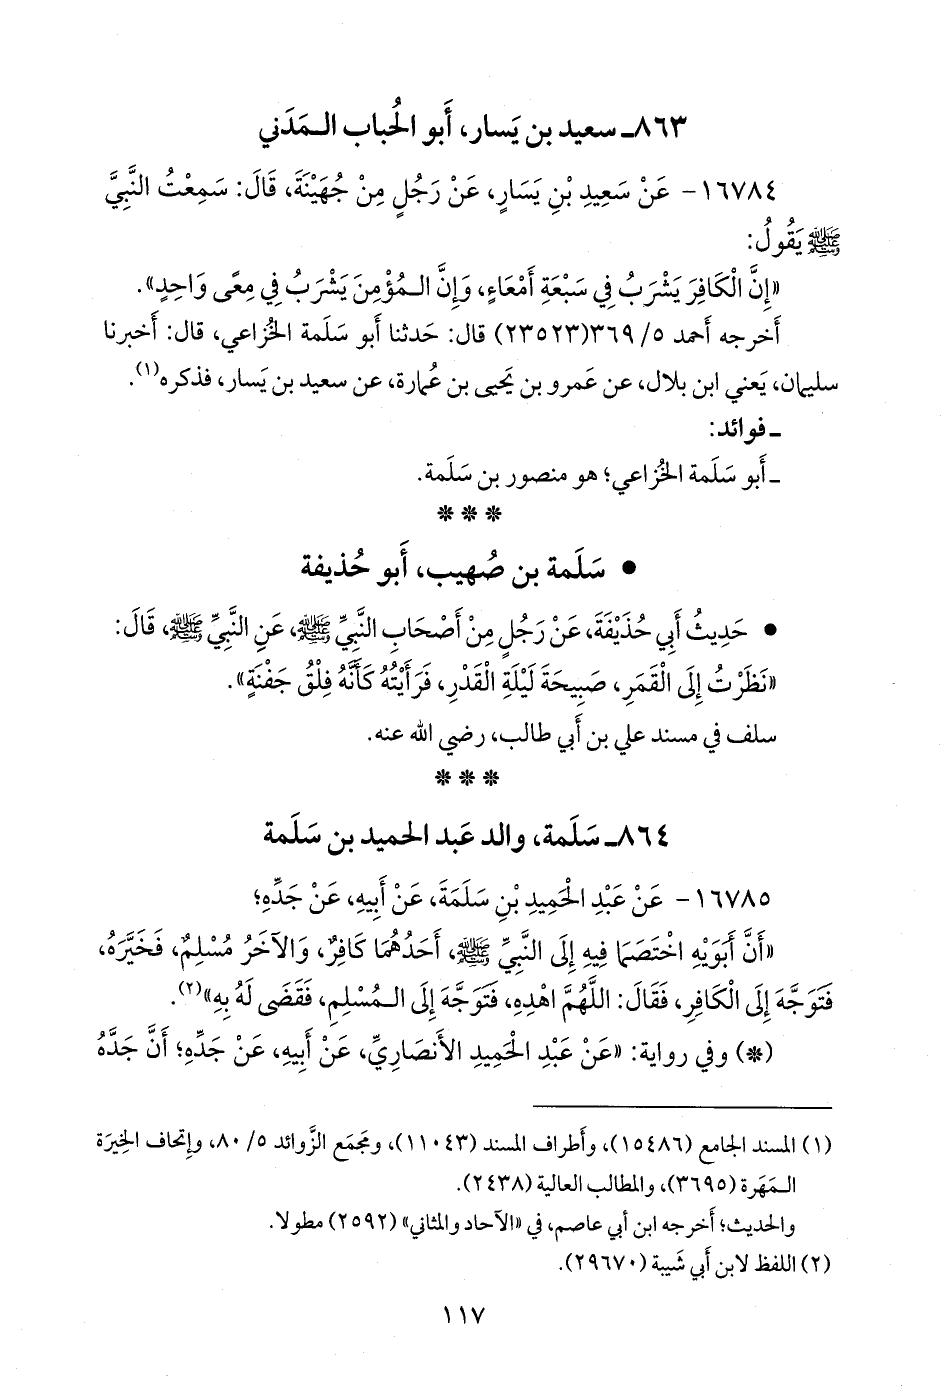 ٨٦٣ـ سعيد بن يَسار، أَبو الحُباب الـمَدَني
١٦٧٨٤- عَنْ سَعِيدِ بْنِ يَسَارٍ، عَنْ رَجُلٍ مِنْ جُهَيْنَةَ، قَالَ: سَمِعْتُ النَّبِيَّ
ﷺ يَقُولُ:
«إِنَّ الْكَافِرَ يَشْرَبُ فِي سَبْعَةِ أَمْعَاءٍ، وَإِنَّ الـمُؤْمِنَ يَشْرَبُ فِي مِعًى وَاحِدٍ».
أَخرجه أَحمد ٥/ ٣٦٩(٢٣٥٢٣) قال: حَدثنا أَبو سَلَمة الخُزاعي، قال: أَخبرنا
سليمان، يَعني ابن بلال، عن عَمرو بن يَحيى بن عُمارة، عن سعيد بن يَسار، فذكره(١).
ـ فوائد:
ـ أَبو سَلَمة الخُزاعي؛ هو منصور بن سَلَمة.
* * *
• سَلَمة بن صُهيب، أَبو حُذيفة
• حَدِيثُ أَبِي حُذَيْفَةَ، عَنْ رَجُلٍ مِنْ أَصْحَابِ النَّبِيِّ ﷺ، عَنِ النَّبِيِّ ﷺ، قَالَ:
«نَظَرْتُ إِلَى الْقَمَرِ، صَبِيحَةَ لَيْلَةِ الْقَدْرِ، فَرَأَيْتُهُ كَأَنَّهُ فِلْقُ جَفْنَةٍ».
سلف في مسند علي بن أَبي طالب، رضي الله عنه.
* * *
٨٦٤ـ سَلَمة، والد عَبد الحميد بن سَلَمة
١٦٧٨٥- عَنْ عَبْدِ الْحَمِيدِ بْنِ سَلَمَةَ، عَنْ أَبِيهِ، عَنْ جَدِّهِ؛
«أَنَّ أَبَوَيْهِ اخْتَصَمَا فِيهِ إِلَى النَّبِيِّ ﷺ، أَحَدُهُمَا كَافِرٌ، وَالآخَرُ مُسْلِمٌ، فَخَيَّرَهُ،
فَتَوَجَّهَ إِلَى الْكَافِرِ، فَقَالَ: اللَّهُمَّ اهْدِهِ، فَتَوَجَّهَ إِلَى الـمُسْلِمِ، فَقَضَى لَهُ بِهِ»(٢).
(*) وفي رواية: «عَنْ عَبْدِ الْحَمِيدِ الأَنْصَارِيِّ، عَنْ أَبِيهِ، عَنْ جَدِّهِ؛ أَنَّ جَدَّهُ
(١) المسند الجامع (١٥٤٨٦)، وأَطراف المسند (١١٠٤٣)، ومَجمَع الزَّوائد ٥/ ٨٠، وإِتحاف الخِيرَة
الـمَهَرة (٣٦٩٥)، والمطالب العالية (٢٤٣٨).
والحديث؛ أَخرجه ابن أَبي عاصم، في «الآحاد والمثاني» (٢٥٩٢) مطولا.
(٢) اللفظ لابن أَبي شَيبة (٢٩٦٧٠).
١١٧